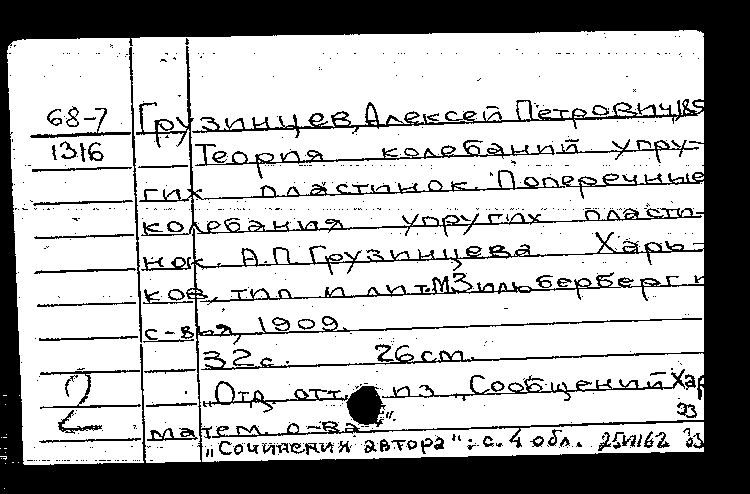 68-7 Грузинцев, Алексей Петрович, 185
1316 Теория колебаний упру-
гих пластинок. Поперечные
колебания упругих пласти-
нок. А.П. Грузинцева. Харь-
ков, тип. и лит. М. Зильберберг и
с-вья, 1909.
32с. 26см.
2 „Отд. отт. из „Сообщений Хар
матем. о-ва".
33
„Сочинения автора": с. 4 обл. 25И162 33